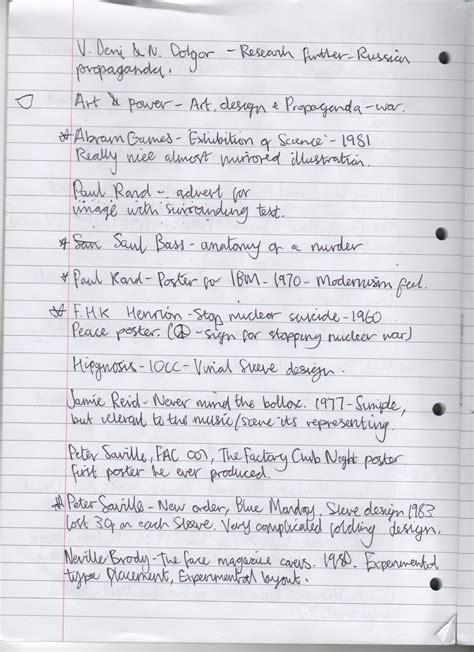 V. Deni & N. Dolgor - Research further - Russian
propaganda.
Art & power - Art, design & Propaganda - war.
* Abram Games - 'Exhibition of Science' - 1981
Really nice almost mirrored illustration.
Paul Rand - advert for
image with surrounding text.
* San Saul Bass - anatomy of a murder
* Paul Rand - Poster for IBM - 1970 - Modernism feel.
* F.H.K Henrion - Stop nuclear suicide - 1960
Peace poster. (☮ - sign for stopping nuclear war)
Hipgnosis - 10CC - Vinial Sleeve design.
Jamie Reid - Never mind the bollox. 1977 - Simple,
but relevent to the music/scene its representing.
Peter Saville, FAC 001, The Factory Club Night poster
first poster he ever produced.
* Peter Saville - New order, Blue Monday. Sleve design 1983
lost 3p on each sleeve. Very complicated folding design.
Neville Brody - The face magazine covers. 1980. Experimental
type Placement, Experimental layout.